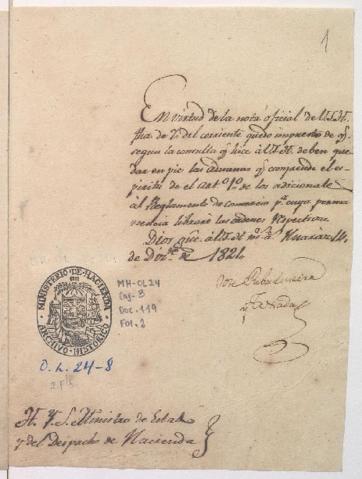 1
En virtud de la nota oficial de V.S.H.
fha. de 7. del corriente quedo impuesto de qe.
segun la consulta qe. hice a V.S.H. deben que
dar en pie las aduanas qe. comprende el es-
piritu de el Arto. 1o. de los adicionales
al Reglamento de comercio pa. cuya perma
nencia libraré las ordenes respectivas.
Dios gue. a V.S.H. ms. as. Huaraz 14.
de Dize. de 1824.
MINISTERIO DE HACIENDA
ARCHIVO HISTORICO
MH-OL24
Caj. 8
Doc. 119
Fol. 2
O.L. 24-8
H. Y. S. Ministro de Estado
y del Despacho de Hacienda